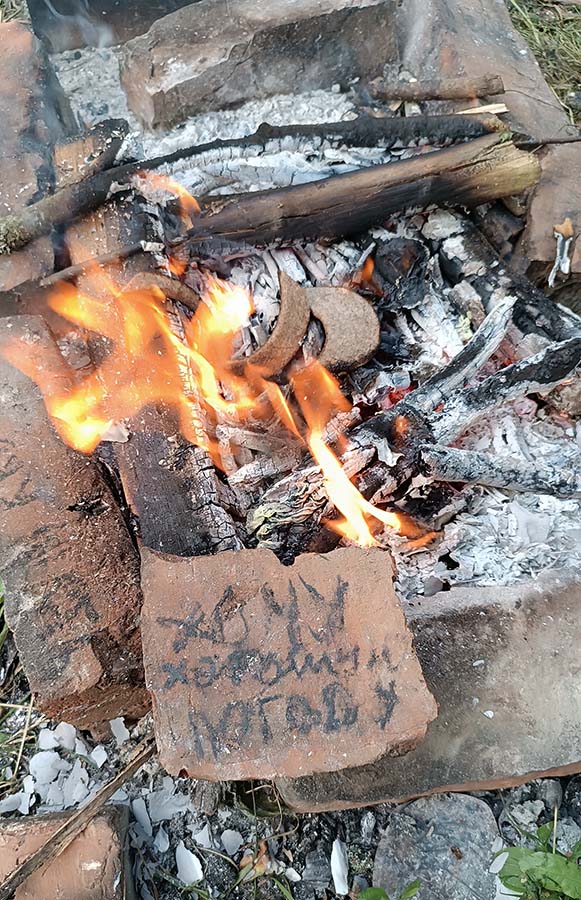 хочу
хорошую
погоду